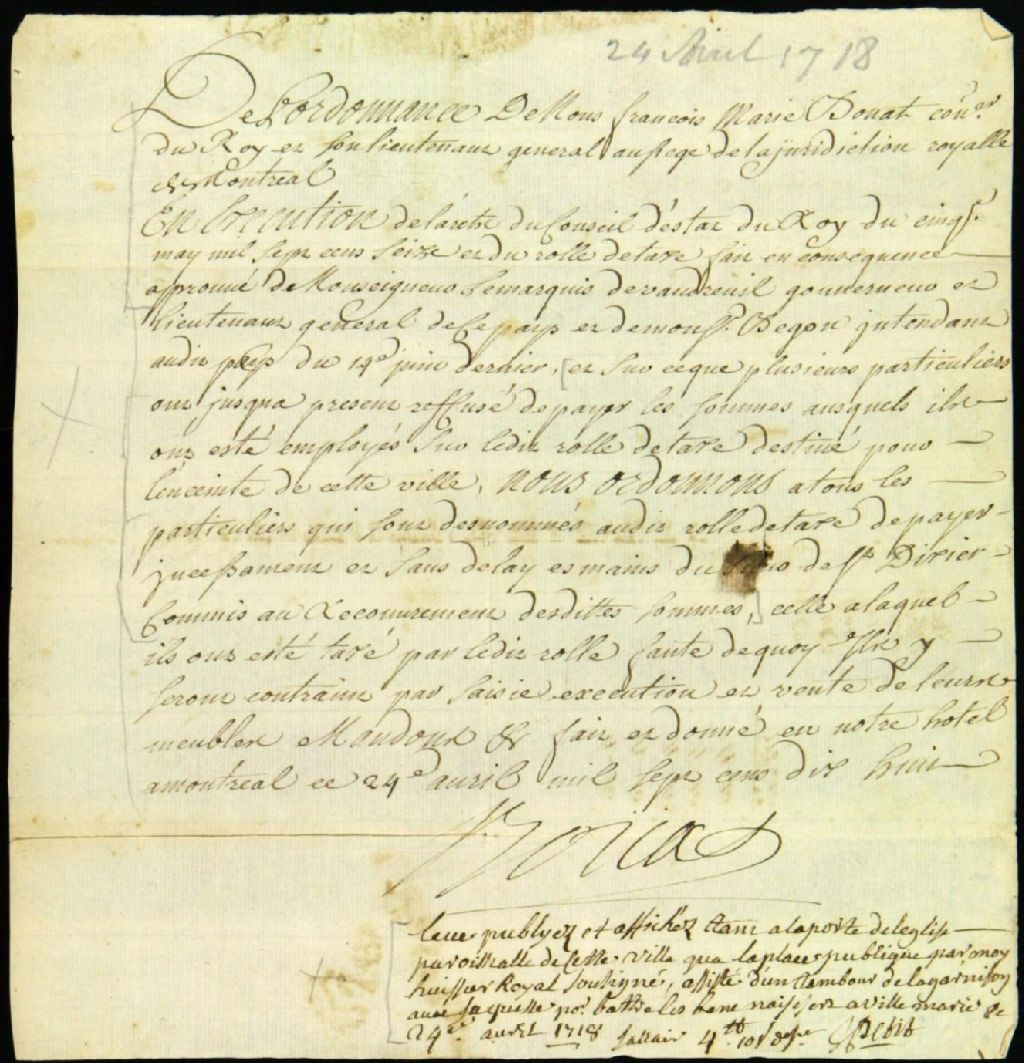 24 Avril 1718
De Lordonnance De Mons francois Marie Bouat con.er
du Roy et son lieutenant general au siege de la juridiction royalle
de Montreal
En Execution de larest du Conseil d'estat du Roy du cinq.e
may mil sept cens seize et du rolle de taxe fait en consequence
aprouvé de Monseigneur Le marquis de vaudreuil gouverneur et
lieutenant general de ce pays et de mons.r Begon jntendant
audit pays du 14e juin dernier, et sur ce que plusieurs particuliers
ont jusqua present reffusé de payer les sommes ausquels ils
ont esté employés sur ledit rolle de taxe destiné pour
lenceinte de cette ville, nous ordonnons a tous les
particuliers qui sont desnommés audit rolle de taxe de payer
jncessament et sans delay es mains du de st Dizier
Commis au Recouvrement desdittes sommes, celle a laquel
ils ont esté taxé par ledit rolle faute de quoy Ils y
seront contraint par saisie execution et vente de leurs
meubles Mandons &c fait et donné en notre hotel
a montreal ce 24e avril mil sept cens dix huit
Bouat
leue publyez et affichez tant a la porte de leglise
paroissialle de Cette ville qua la place publique par moy
huissier Royal Souligné, assisté d'un tambour de la garnison
avec sa quaisse por. battre les bans a ville marie le
24e avril 1718 sallair 4tt 10s